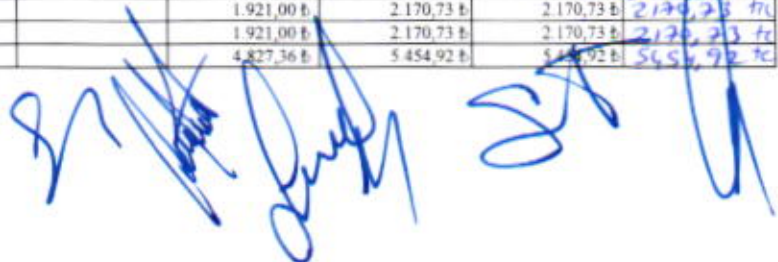 1.921,00 ₺ 2.170,73 ₺ 2.170,73 ₺ 2170,73 TL
1.921,00 ₺ 2.170,73 ₺ 2.170,73 ₺ 2170,73 TL
4.827,36 ₺ 5.454,92 ₺ 5.454,92 ₺ 5454,92 TL